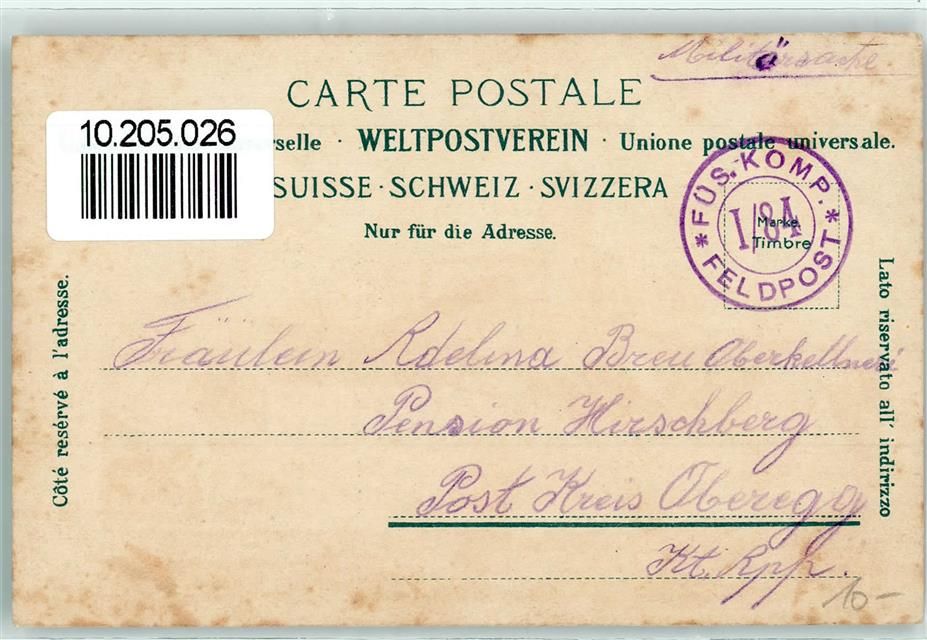 Militärsache
CARTE POSTALE
10.205.026
selle · WELTPOSTVEREIN · Unione postale universale.
SUISSE · SCHWEIZ · SVIZZERA
Nur für die Adresse.
* FÜS. KOMP. *
I/84
FELDPOST
Marke
Timbre
Côté resérvé à l'adresse.
Lato riservato all' indirizzo
Fräulein Adelina Breu Oberkellneri
Pension Hirschberg
Post Kreis Oberegg
Kt. App.
10-